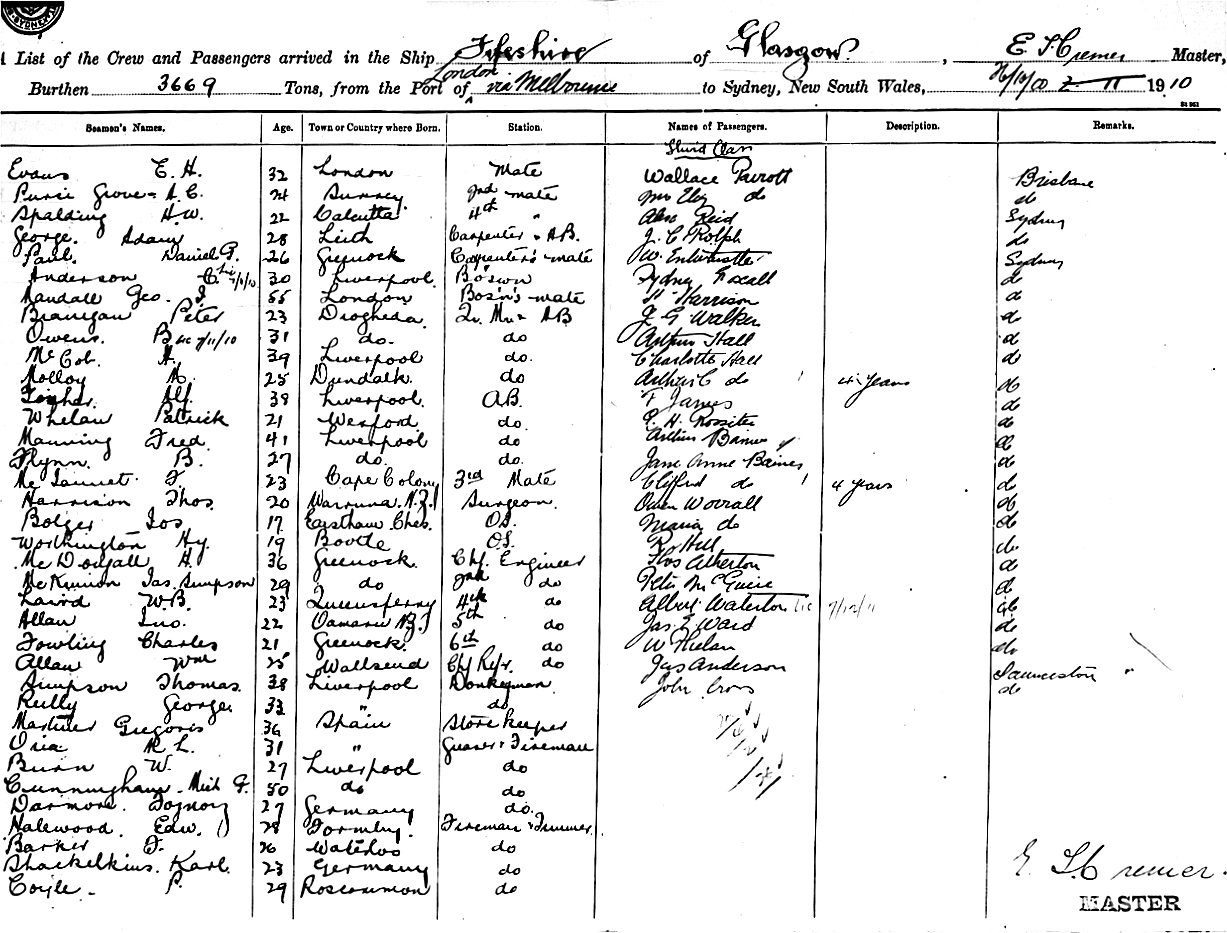 SYDNEY
List of the Crew and Passengers arrived in the Ship Fifeshire of Glasgow, E. Cremer Master,
Burthen 3669 Tons, from the Port of London via Melbourne to Sydney, New South Wales, 1910
Seamen's Names. Age. Town or Country where Born. Station. Names of Passengers. Description. Remarks.
Third Class
Evans E. H. 32 London Mate Wallace Parrott Brisbane
A. C. 24 Surrey 2nd mate do do
Spalding H.W. 22 Calcutta 4th " Alex Reid Sydney
George Adam 28 Leith Carpenter & A.B. J. C. Rolph do
Paul Daniel G. 26 Greenock Carpenter's mate W. Entwistle Sydney
Anderson C. 30 Liverpool Bo'swn Sydney do
Randall Geo. J. 55 London Bosn's mate H. Harrison d
Branigan Peter 23 Drogheda Qr. Mr & AB J. G. Walker do
Owens B 7/11/10 31 do. do Arthur Hall do
McCob. A. 39 Liverpool do. Charlotte Hall do
Molloy A. 25 Dundalk do Arthur C do 1 years do
Alf. 38 Liverpool A.B. F James do
Whelan Patrick 21 Wexford do. H. Rossiter do
Manning Fred 41 Liverpool do Arthur do
Flynn B. 27 do. do. Jane Anne Baines do
F. 23 Cape Colony 3rd Mate Clifford do 1 4 Years do
Harrison Thos 20 N.Z. Surgeon. Owen Worrall do
Bolger Jos 17 Eastham Ches. O.S. Maria do do
Worthington Hy. 19 Bootle O.S. Hill do
McDougall H. 36 Greenock Chf. Engineer Atherton do
McKinnon Jas. Simpson 29 do 2nd do Peter McGuire do
Laird W.B. 23 Queensferry 4th do Albert Waterton 7/12/11 do
Allan Jno. 22 Oamaru N.Z. 5th do Jas. E Ward do
Fowling Charles 21 Greenock 6th do W Phelan do
Allan Wm 25 Wallsend Chf Refr. do Jas Anderson Launceston "
Simpson Thomas. 38 Liverpool Donkeyman John Cross do
Reilly George 33 " do
Martinez Gregorio 36 Spain Storekeeper
Oria R. L. 31 " Greaser & Fireman
Burn W. 27 Liverpool do
Cunningham Mich G. 50 do do
Darmore 27 Germany do.
Halewood. Edw. 28 Formby. Fireman & Trimmer
Barker F. 26 Waterloo do
Shackelkins. Karl. 23 Germany do
Coyle P. 29 Roscommon do
E. Cremer.
MASTER